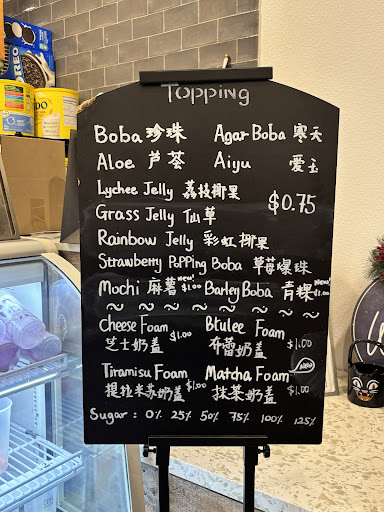 OREO
Topping
Boba 珍珠 Agar Boba 寒天
Aloe 芦荟 Aiyu 爱玉
Lychee Jelly 荔枝椰果
$0.75
Grass Jelly 仙草
Rainbow Jelly 彩虹椰果
Strawberry PoPPing Boba 草莓爆珠
Mochi 麻薯 new! $1.00 Barley Boba 青稞 new! $1.00
~ ~ ~ ~ ~ ~ ~ ~ ~
Cheese Foam $1.00 Brulee Foam
芝士奶盖 布蕾奶盖 $1.00
Tiramisu Foam Matcha Foam new
提拉米苏奶盖 $1.00 抹茶奶盖 $1.00
Sugar : 0% 25% 50% 75% 100% 125%